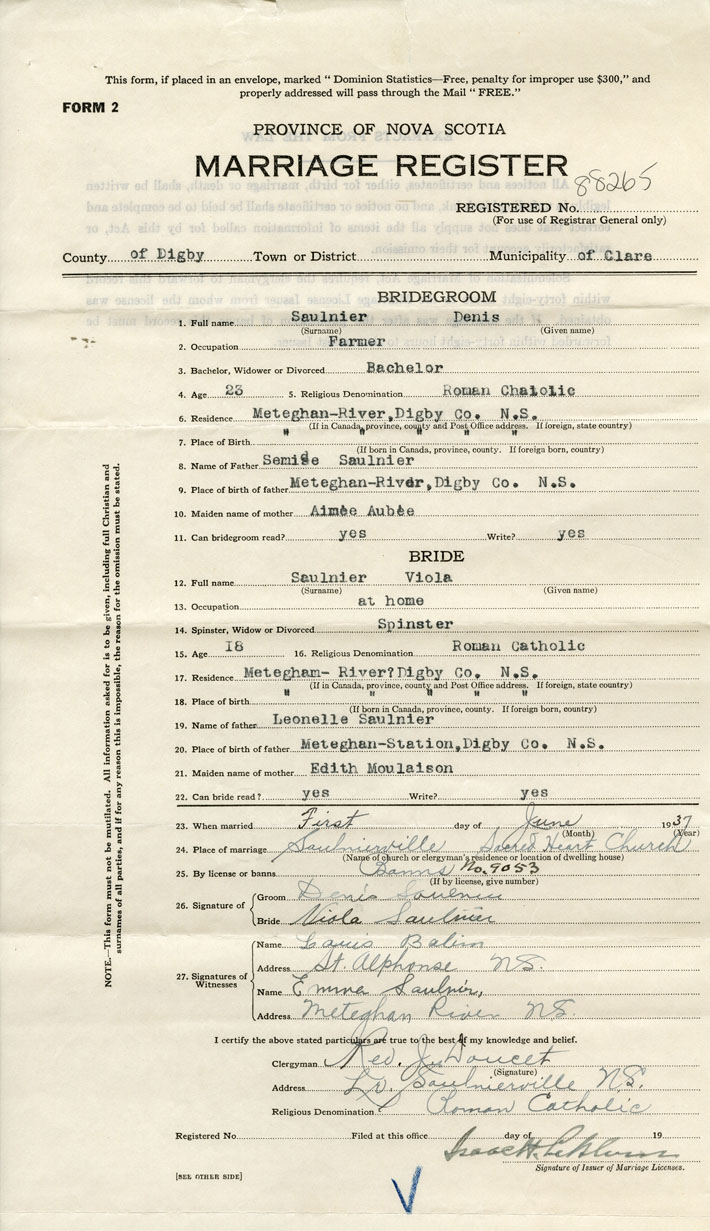 This form, if placed in an envelope, marked " Dominion Statistics—Free, penalty for improper use $300," and
properly addressed will pass through the Mail " FREE."
FORM 2
PROVINCE OF NOVA SCOTIA
MARRIAGE REGISTER
88265
REGISTERED No.
(For use of Registrar General only)
County of Digby Town or District Municipality of Clare
BRIDEGROOM
1. Full name Saulnier Denis
(Surname) (Given name)
2. Occupation Farmer
3. Bachelor, Widower or Divorced Bachelor
4. Age 23 5. Religious Denomination Roman Chatolic
6. Residence Meteghan-River, Digby Co. N.S.
(If in Canada, province, county and Post Office address. If foreign, state country)
7. Place of Birth " " " "
(If born in Canada, province, county. If foreign born, country)
8. Name of Father Saulnier
9. Place of birth of father Meteghan-River, Digby Co. N.S.
10. Maiden name of mother Aimèe Aubèe
11. Can bridegroom read? yes Write? yes
BRIDE
12. Full name Saulnier Viola
(Surname) (Given name)
13. Occupation at home
14. Spinster, Widow or Divorced Spinster
15. Age 18 16. Religious Denomination Roman Catholic
17. Residence Metegham- River?Digby Co. N.S.
(If in Canada, province, county and Post Office address. If foreign, state country)
18. Place of birth " " " "
(If born in Canada, province, county. If foreign born, country)
19. Name of father Leonelle Saulnier
20. Place of birth of father Meteghan-Station, Digby Co. N.S.
21. Maiden name of mother Edith Moulaison
22. Can bride read? yes Write? yes
23. When married First day of June 1937
(Month) (Year)
24. Place of marriage Saulnierville Sacred Heart Church
(Name of church or clergyman's residence or location of dwelling house)
25. By license or banns Banns No. 9053
(If by license, give number)
26. Signature of
Groom Denis
Bride Viola Saulnier
27. Signatures of Witnesses
Name Louis
Address St. Alphonse N.S.
Name Emma Saulnier,
Address Meteghan River N.S.
I certify the above stated particulars are true to the best of my knowledge and belief.
Clergyman Rev. J. Doucet
(Signature)
Address Saulnierville N.S.
Religious Denomination Roman Catholic
Registered No. Filed at this office day of 19
Isaac H.
Signature of Issuer of Marriage Licenses.
[SEE OTHER SIDE]
NOTE.—This form must not be mutilated. All information asked for is to be given, including full Christian and
surnames of all parties, and if for any reason this is impossible, the reason for the omission must be stated.